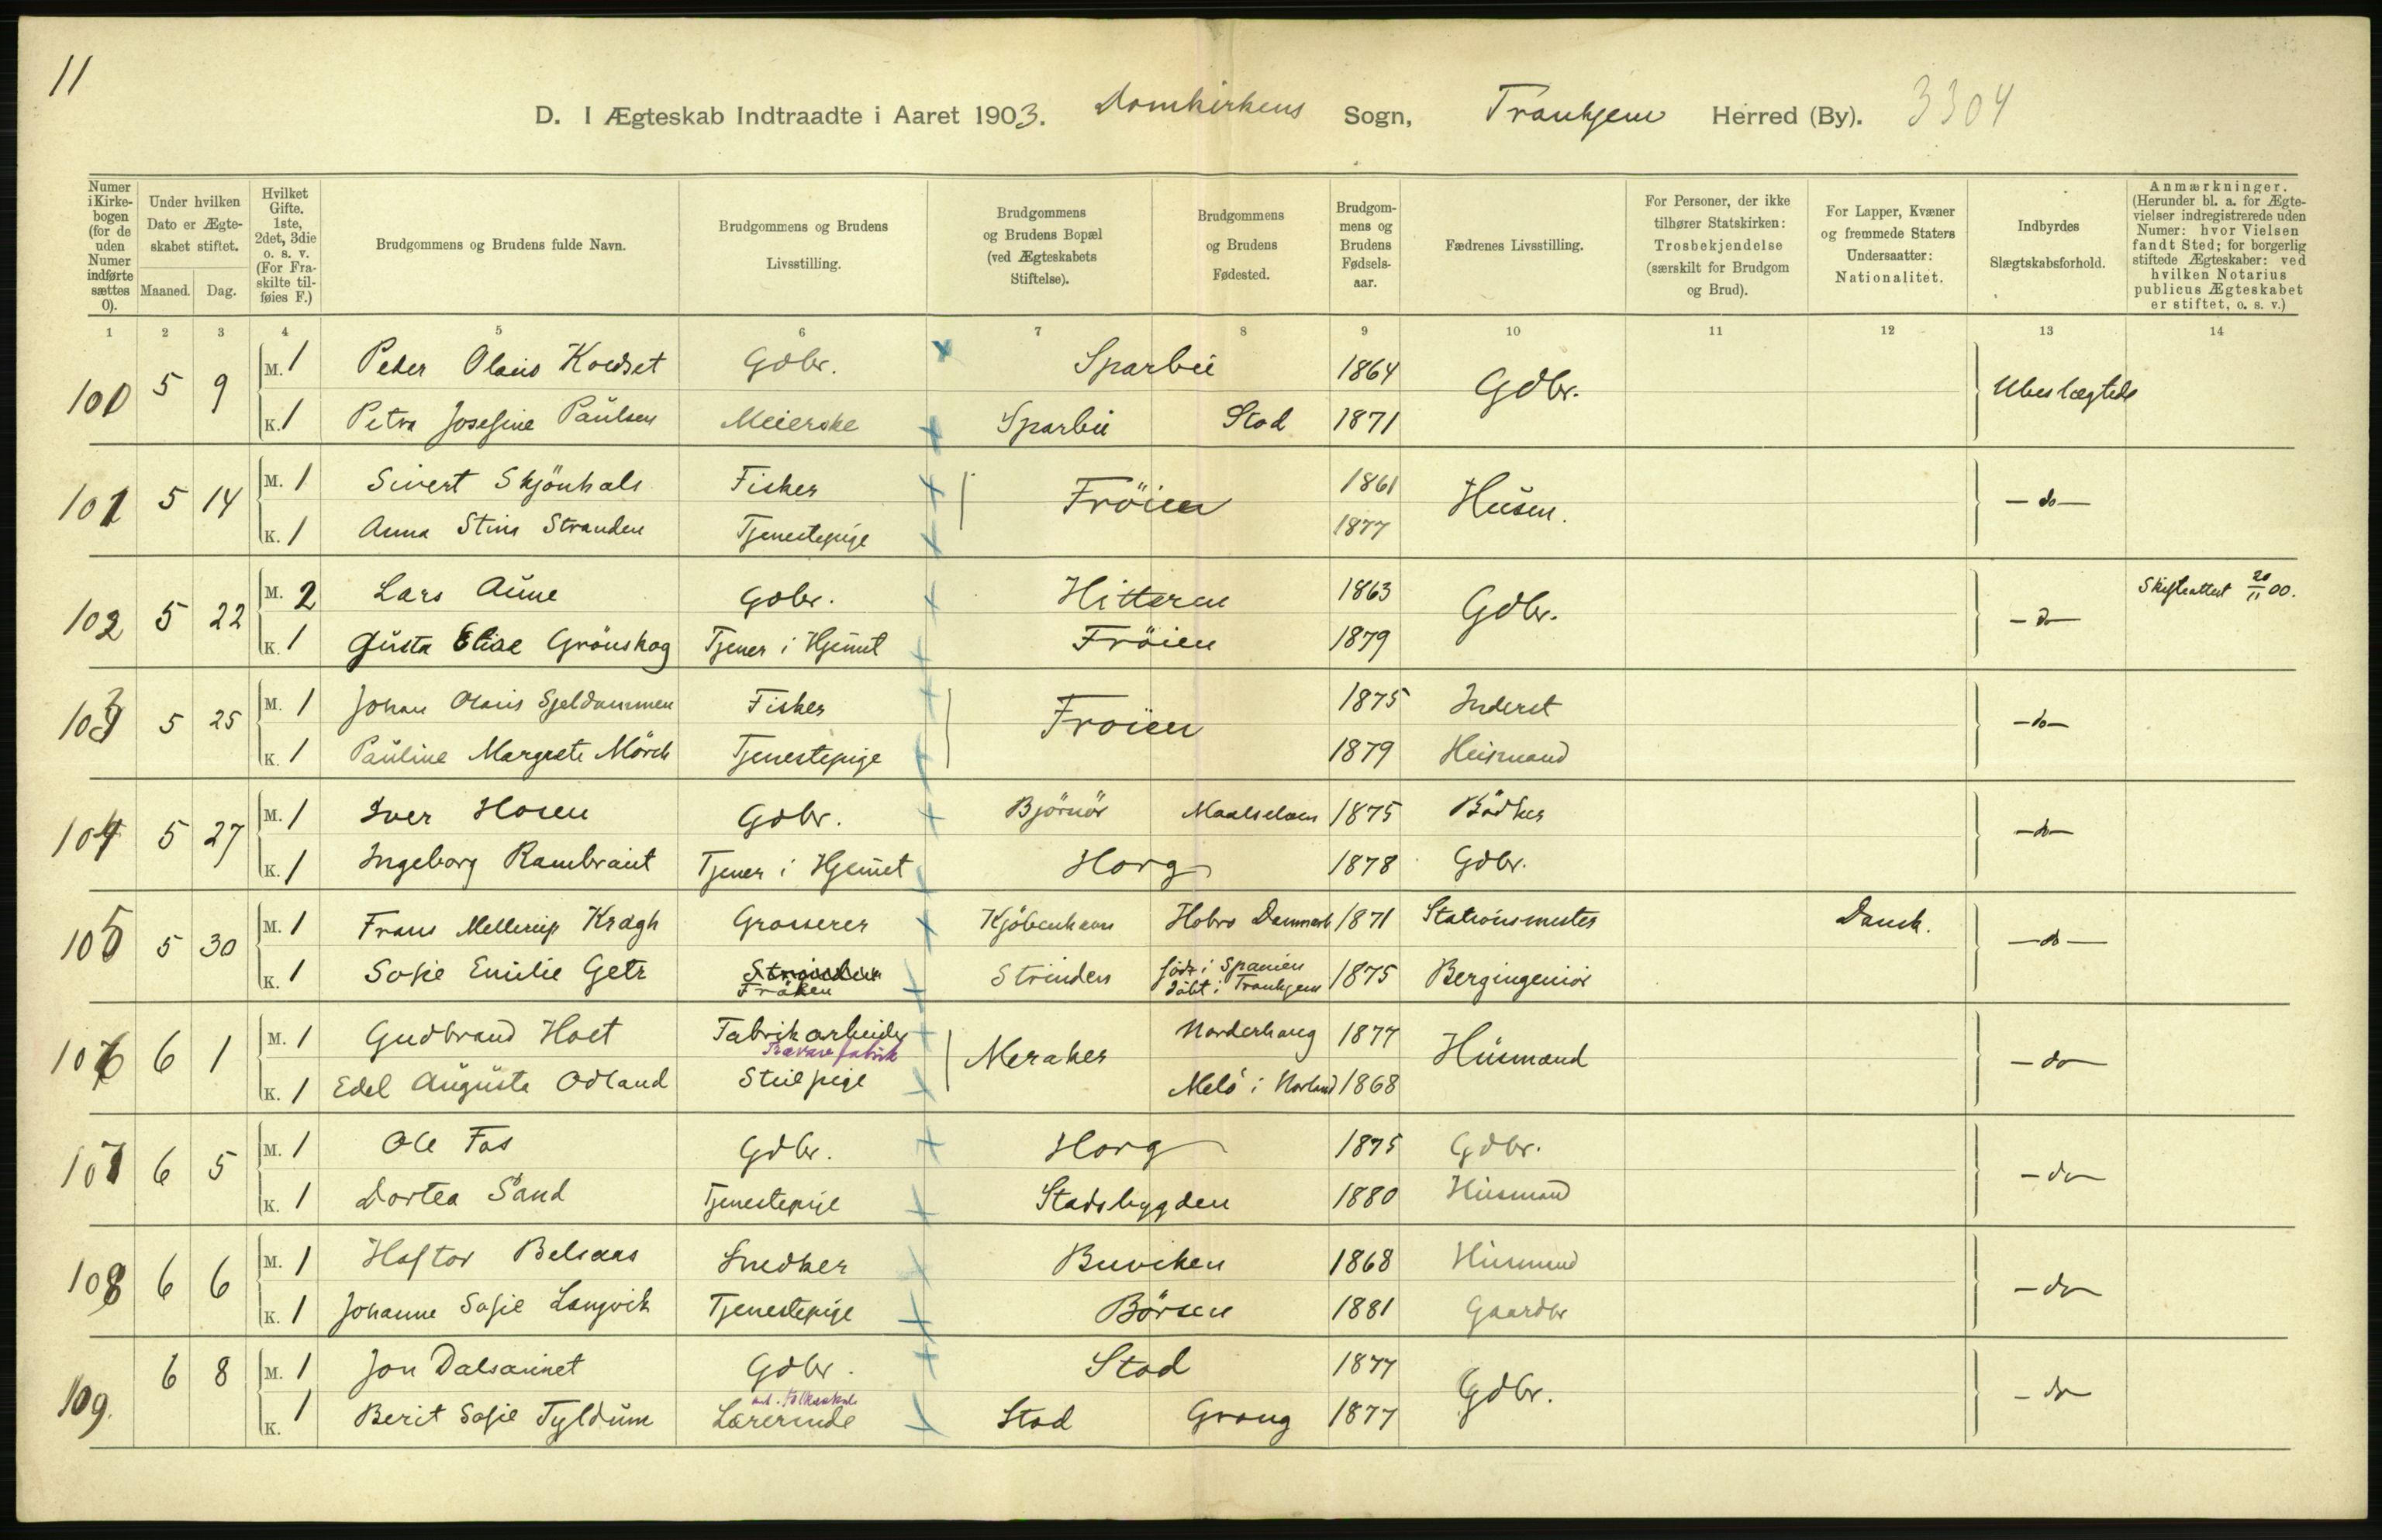 11
D. I Ægteskab Indtraadte i Aaret 1903. Domkirkens Sogn, Trondhjem Herred (By). 3304
Numer i Kirkebogen (for de uden Numer indførte sættes 0).
Under hvilken Dato er Ægteskabet stiftet.
Maaned. Dag.
Hvilket Gifte. 1ste, 2det, 3die o. s. v. (For Fraskilte tilføies F.)
Brudgommens og Brudens fulde Navn.
Brudgommens og Brudens Livsstilling.
Brudgommens og Brudens Bopæl (ved Ægteskabets Stiftelse).
Brudgommens og Brudens Fødested.
Brudgommens og Brudens Fødselsaar.
Fædrenes Livsstilling.
For Personer, der ikke tilhører Statskirken: Trosbekjendelse (særskilt for Brudgom og Brud).
For Lapper, Kvæner og fremmede Staters Undersaatter: Nationalitet.
Indbyrdes Slægtskabsforhold.
Anmærkninger. (Herunder bl. a. for Ægtevielser indregistrerede uden Numer: hvor Vielsen fandt Sted; for borgerlig stiftede Ægteskaber: ved hvilken Notarius publicus Ægteskabet er stiftet, o. s. v.)
1 2 3 4 5 6 7 8 9 10 11 12 13 14
100 5 9 M. 1 Peder Olaus Koldset Gdbr. Sparbu 1864 Gdbr. Ubeslægtede
K. 1 Petra Josefine Paulsen Meierske Sparbu Stod 1871
101 5 14 M. 1 Sivert Skjönhals Fisker Fröien 1861 Husm. - do -
K. 1 Anna Stina Stranden Tjenestepige 1877
102 5 22 M. 2 Lars Aune Gdbr. Hitteren 1863 Gdbr. - do - Skifteattest 20/11 00.
K. 1 Gusta Elise Grönskag Tjener i Hjemmet Fröien 1879
103 5 25 M. 1 Johan Olaus Sjeldammen Fisker Fröien 1875 Inderst - do -
K. 1 Pauline Margrete Mörch Tjenestepige 1879 Husmand
104 5 27 M. 1 Iver Hosen Gdbr. Björnör Maalselven 1875 Bödker - do -
K. 1 Ingeborg Rambraut Tjener i Hjemmet Horg 1878 Gdbr.
105 5 30 M. 1 Frans Mellerup Kragh Grosserer Kjöbenhavn Hobro Danmark 1871 Stationsmester Dansk. - do -
K. 1 Sofie Emilie Getz Fröken Strinden født i Spanien döbt i Trondhjem 1875 Bergingeniör
106 6 1 M. 1 Gudbrand Hoet Fabrikarbeider Trævarefabrik Meraker Norderhaug 1877 Husmand - do -
K. 1 Edel Augusta Odland Stuepige Melö i Norland 1868
107 6 5 M. 1 Ole Fos Gdbr. Horg 1875 Gdbr. - do -
K. 1 Dortea Sand Tjenestepige Stadsbygden 1880 Husmand
108 6 6 M. 1 Haftor Belsaas Snedker Buviken 1868 Husmand - do -
K. 1 Johanne Sofie Langvik Tjenestepige Börsen 1881 Gaardbr
109. 6 8 M. 1 Jon Dalsaunet Gdbr. Stod 1877 Gdbr. - do -
K. 1 Berit Sofie Tyldum Lærerinde Stod Grong 1877